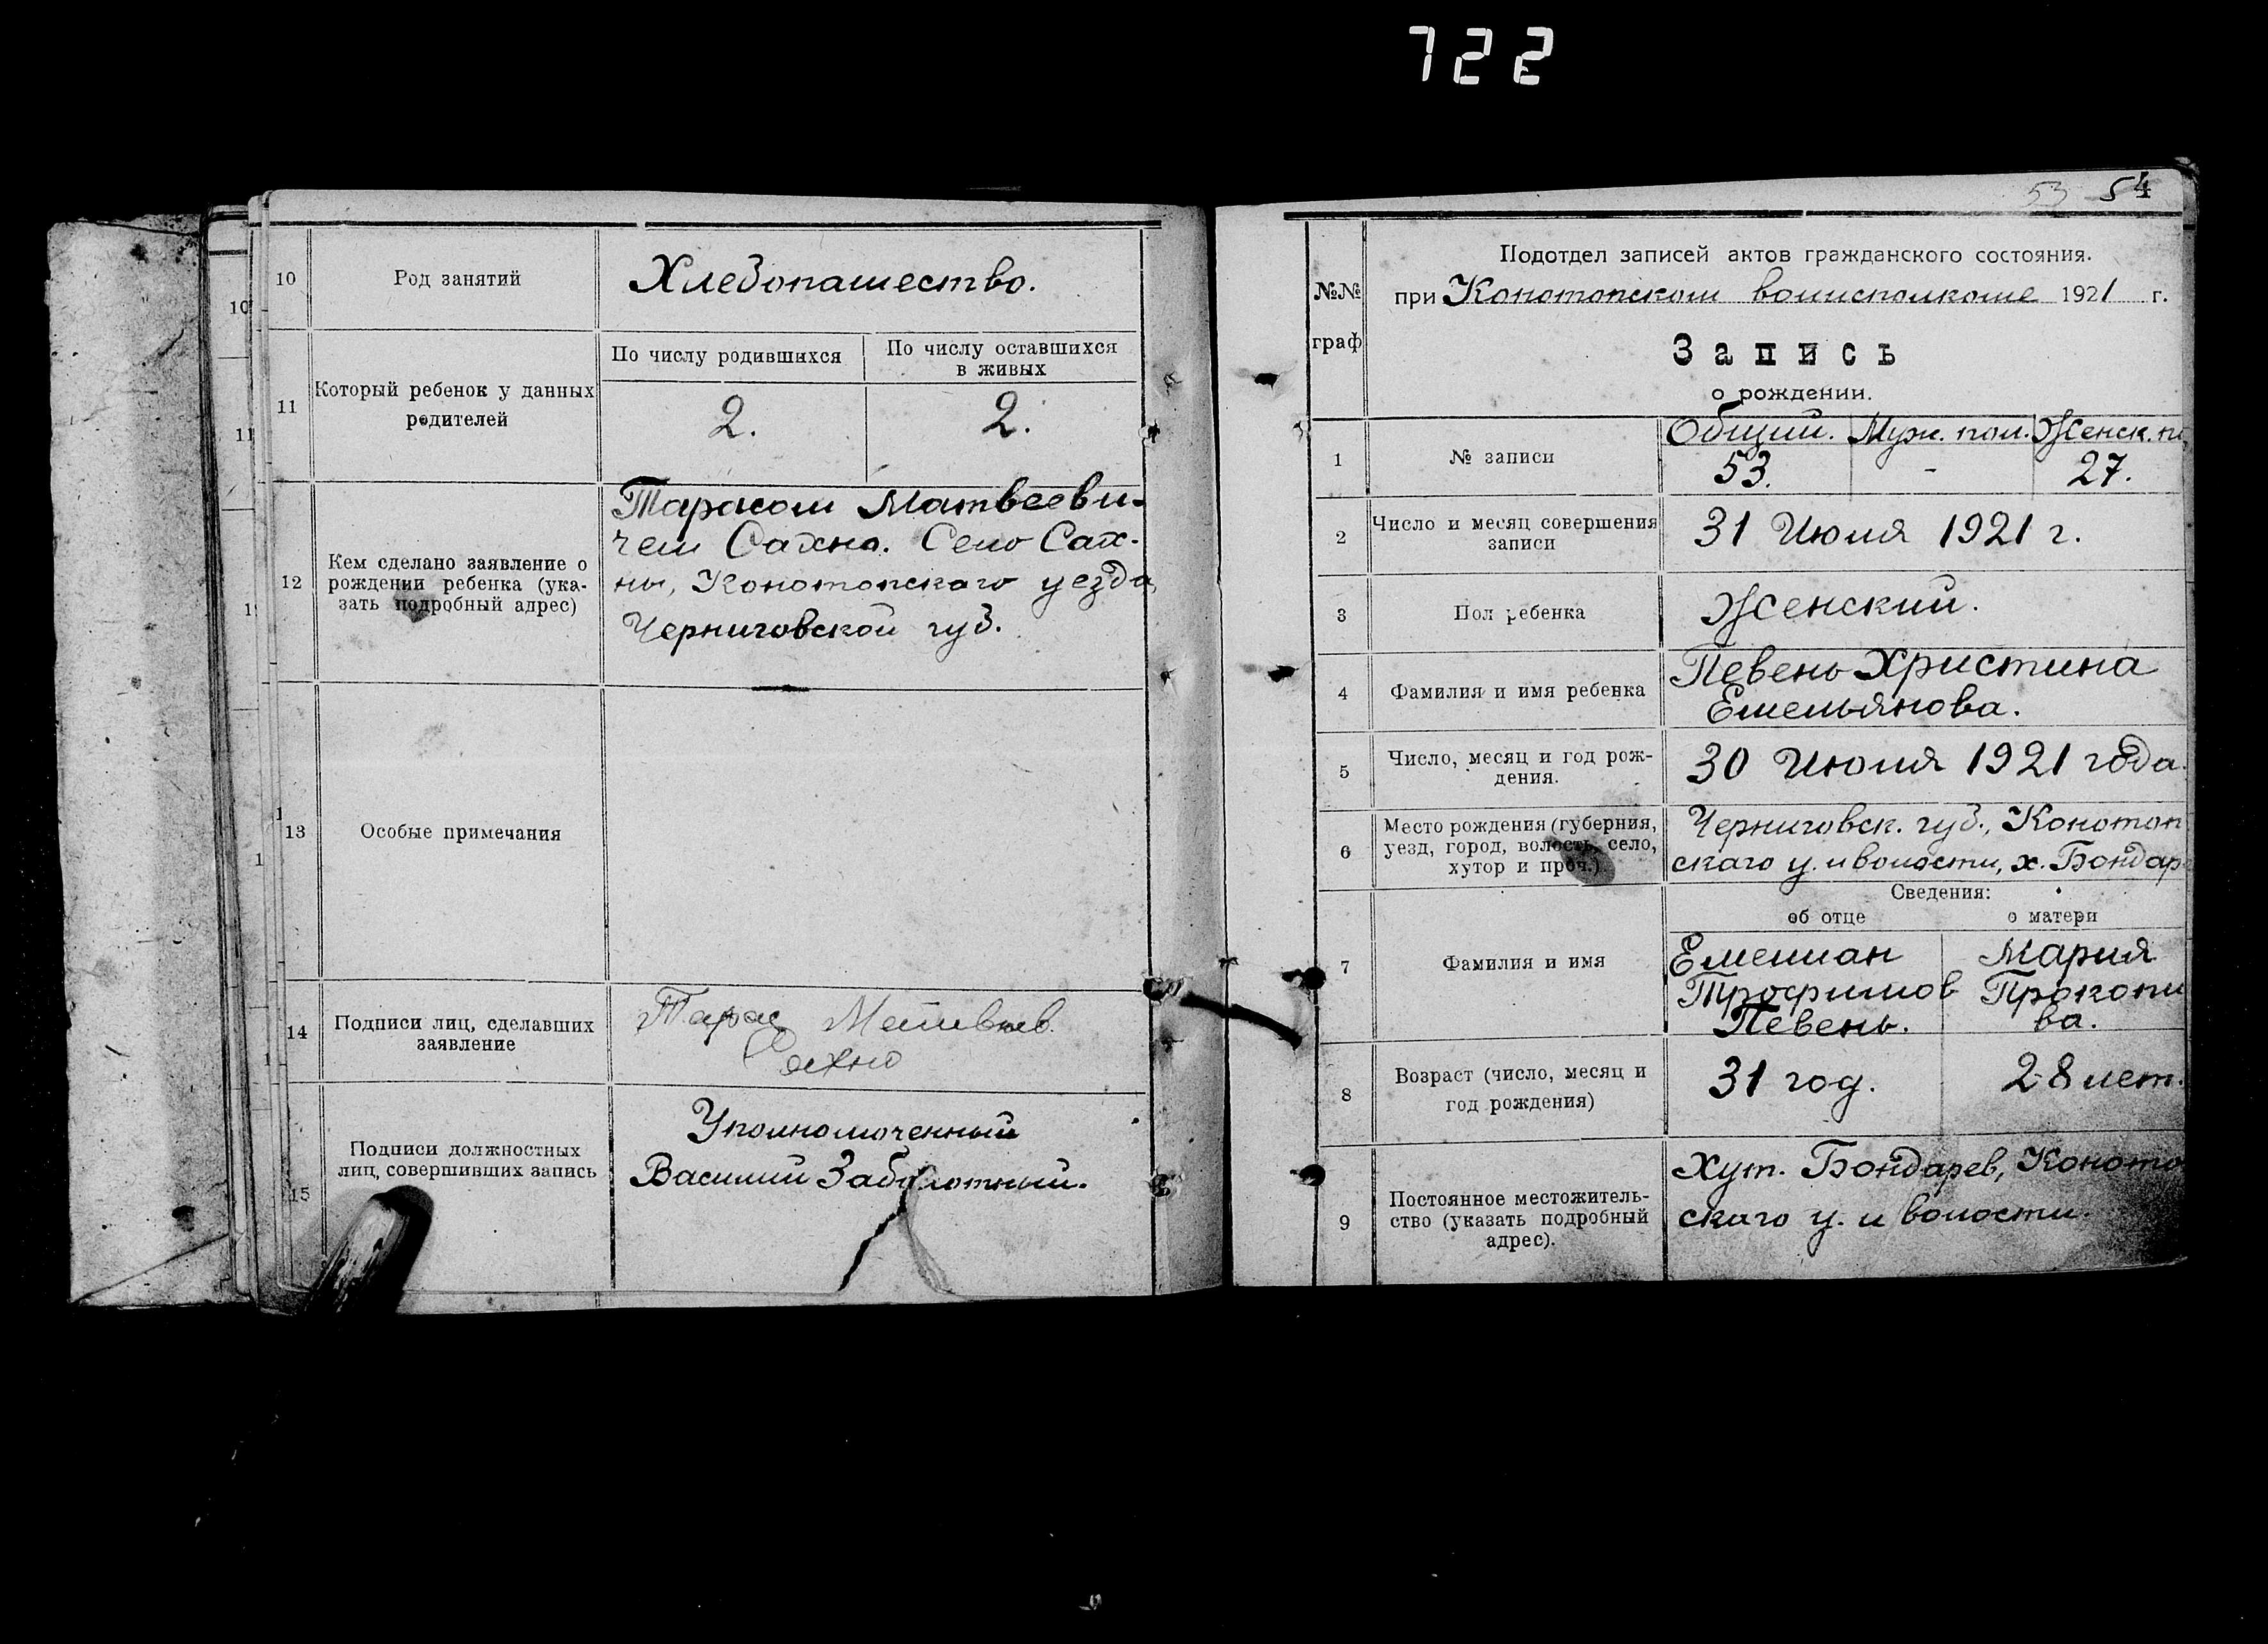 722
10
Род занятий
Хлебопашество.
11
Который ребенок у данных
родителей
По числу родившихся
По числу оставшихся
в живых
2.
2.
12
Кем сделано заявление о
рождении ребенка (ука-
зать подробный адрес)
Тарасом Матвееви-
чем Сахно. Село Сах-
ны, Конотопскаго уезда,
Черниговской губ.
13
Особые примечания
14
Подписи лиц, сделавших
заявление
Тарас
Сахно
15
Подписи должностных
лиц, совершивших запись
Уполномоченный
Василий Заболотный.
53 54
№№
граф
Подотдел записей актов гражданского состояния.
при Конотопском волисполкоме 1921 г.
Запись
о рождении.
1
№ записи
Общий. Муж. пол. Женск. по
53. - 27.
2
Число и месяц совершения
записи
31 Июля 1921 г.
3
Пол ребенка
Женский.
4
Фамилия и имя ребенка
Певень Христина
Емельянова.
5
Число, месяц и год рож-
дения.
30 Июля 1921 года.
6
Место рождения (губерния,
уезд, город, волость, село,
хутор и проч.)
Черниговск. губ., Конотоп
скаго у. и волости, х. Бондар
Сведения:
об отце
о матери
7
Фамилия и имя
Емелиан
Трофимов
Певень.
Мария
Прокопи
ва.
8
Возраст (число, месяц и
год рождения)
31 год.
28 лет.
9
Постоянное местожитель-
ство (указать подробный
адрес).
Хут. Бондарев, Коното
скаго у. и волости.
10
11